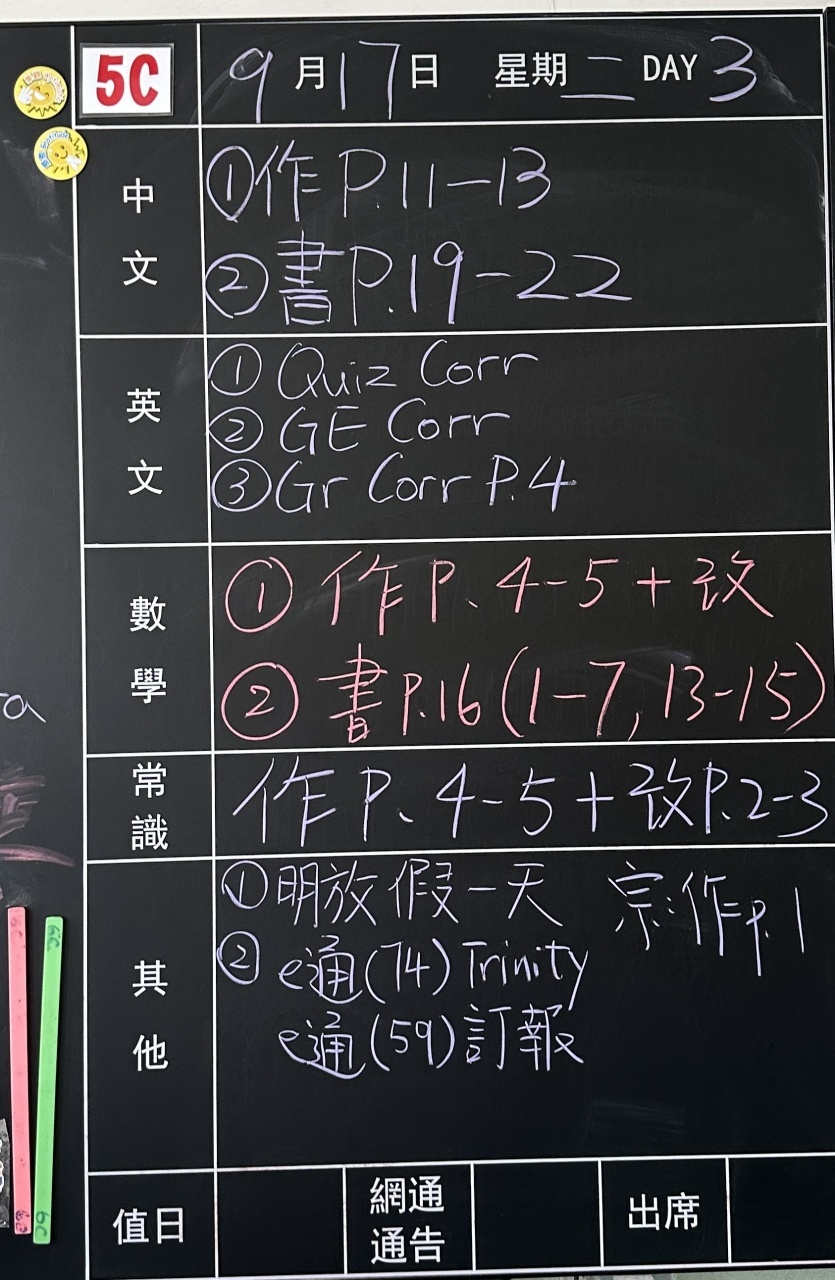 5C 9月17日 星期二 DAY 3
中文
①作 P.11-13
②書P.19-22
英文
① Quiz Corr
② GE Corr
③ Gr Corr P.4
數學
① 作P. 4-5 + 改
② 書P.16 (1-7, 13-15)
常識
作 P. 4-5 + 改P.2-3
其他
①明放假一天
宗:作p.1
② e通(74) Trinity
e通(59) 訂報
值日 網通通告 出席
6C